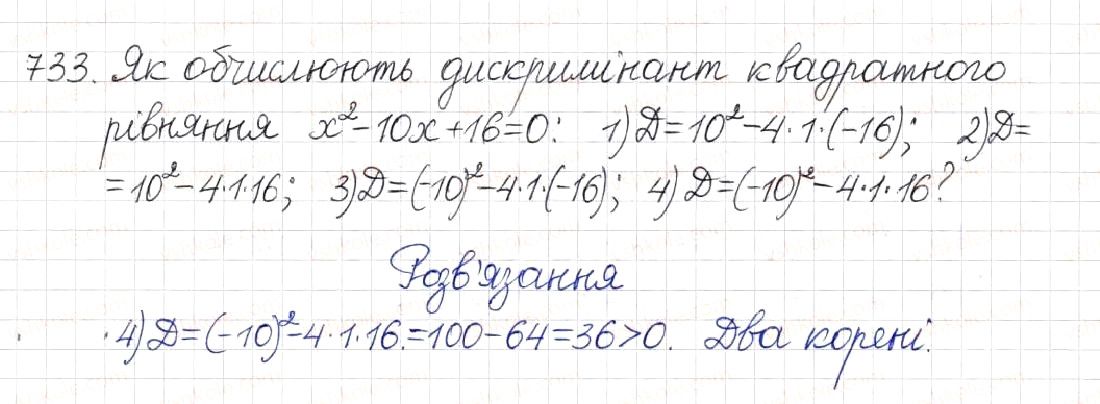 733. Як обчислюють дискримінант квадратного
рівняння x²-10x+16=0: 1) Д=10²-4·1·(-16); 2) Д=
=10²-4·1·16; 3) Д=(-10)²-4·1·(-16); 4) Д=(-10)²-4·1·16?
Розв'язання
4) Д=(-10)²-4·1·16=100-64=36>0. Два корені.